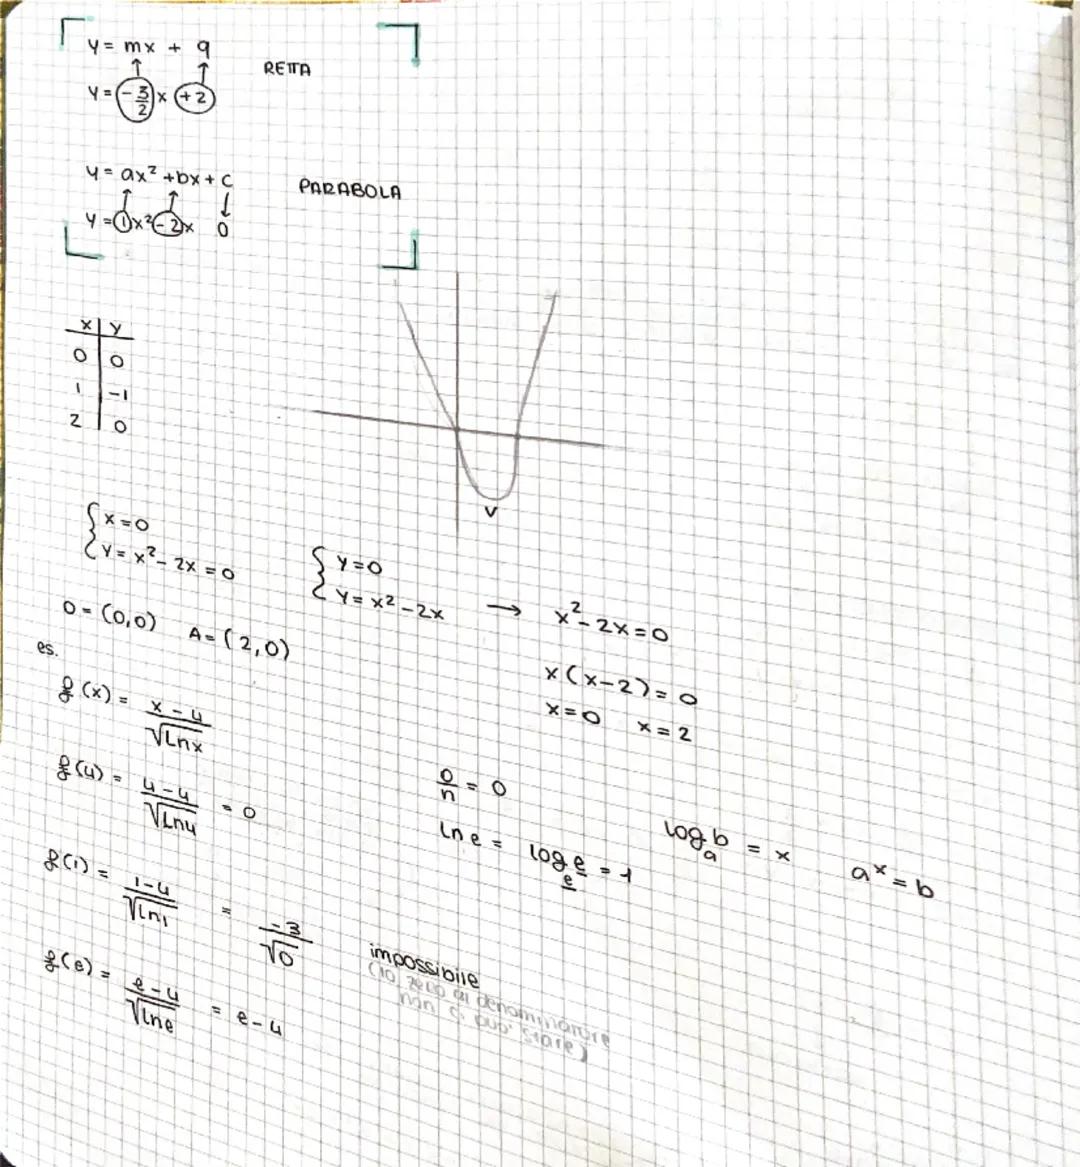 y = mx + q
RETTA
y = -3/2 x +2
y = ax² + bx + c
PARABOLA
y = 1x² - 2x 0
x | y
0 | 0
1 | -1
2 | 0
V
{ x = 0
{ y = x² - 2x = 0
{ y = 0
{ y = x² - 2x → x² - 2x = 0
O = (0,0) A = (2,0)
x(x-2) = 0
x = 0 x = 2
es.
f(x) = (x-4)/√(Lnx)
f(4) = (4-4)/√(Ln4) = 0
0/n = 0
ln e = logₑ e = 1
logₐ b = x aˣ = b
f(1) = (1-4)/√(Ln1) = -3/√0 impossibile
(lo zero al denominatore
non ci può stare)
f(e) = (e-4)/√(lne) = e-4